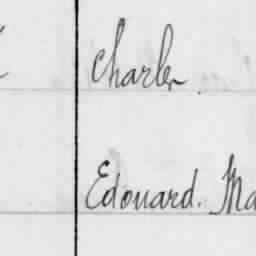 Charles
Edouard. Ma